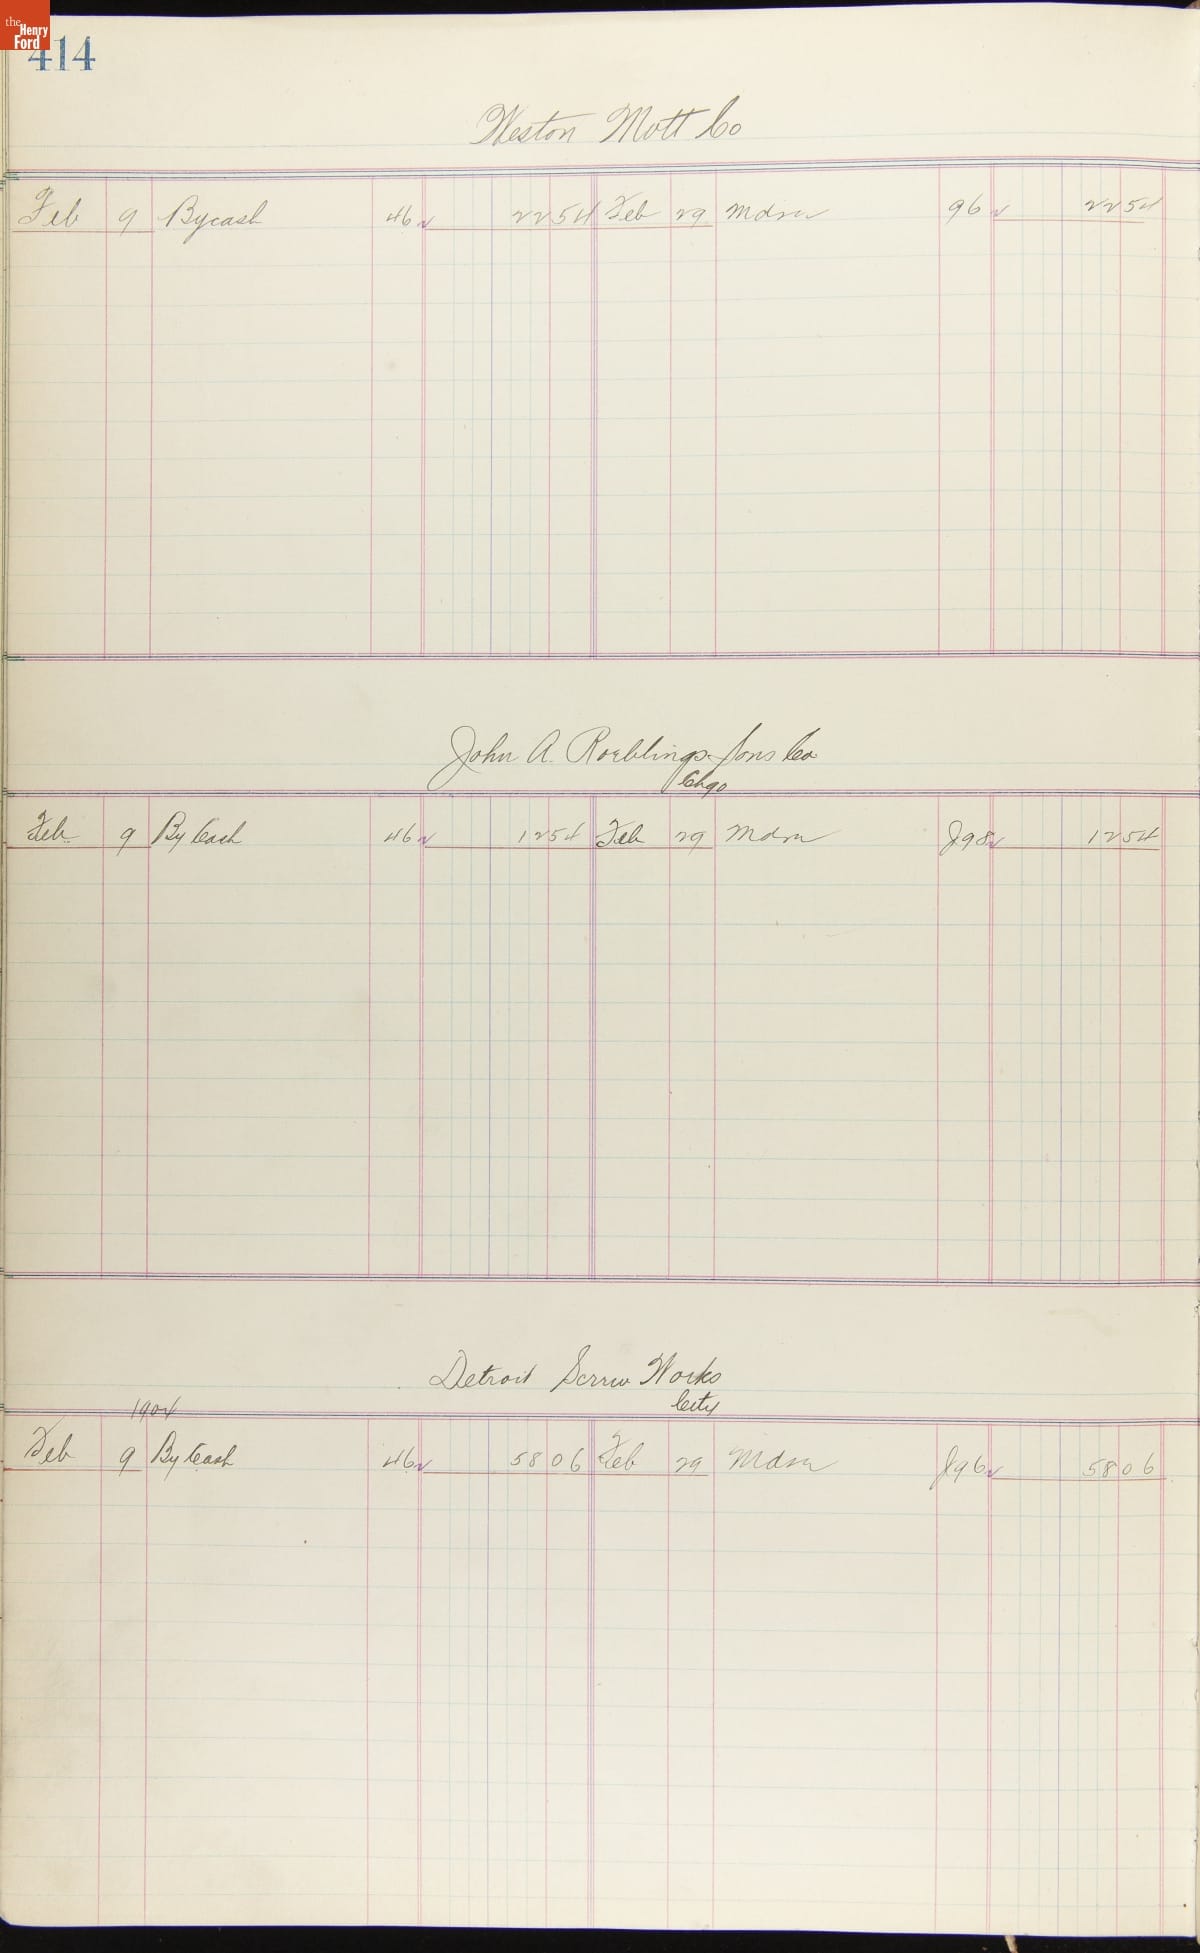 the Henry Ford
414
Weston Mott Co
Feb 9 By cash 46 22 54 Feb 29 Mdse 96 22 54
John A. Roeblings Sons Co
Chgo
Feb 9 By Cash 46 12 54 Feb 29 Mdse J98 12 54
Detroit Screw Works
City
1904
Feb 9 By Cash 46 58 06 Feb 29 Mdse J96 58 06